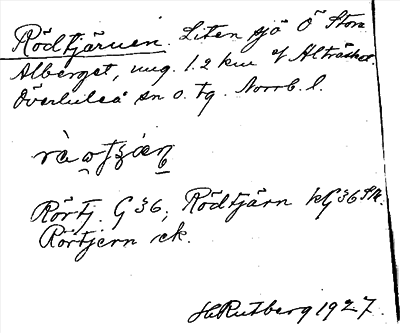 Rödtjärnen. Liten sjö Ö Stor
Alberget, ung. 1.2 km Alträsket.
Överluleå sn o. tg. Norrb. l.
Rörtj. G 36; Rödtjärn kG 36
Rörtjern ek.
H Rutberg 1927.